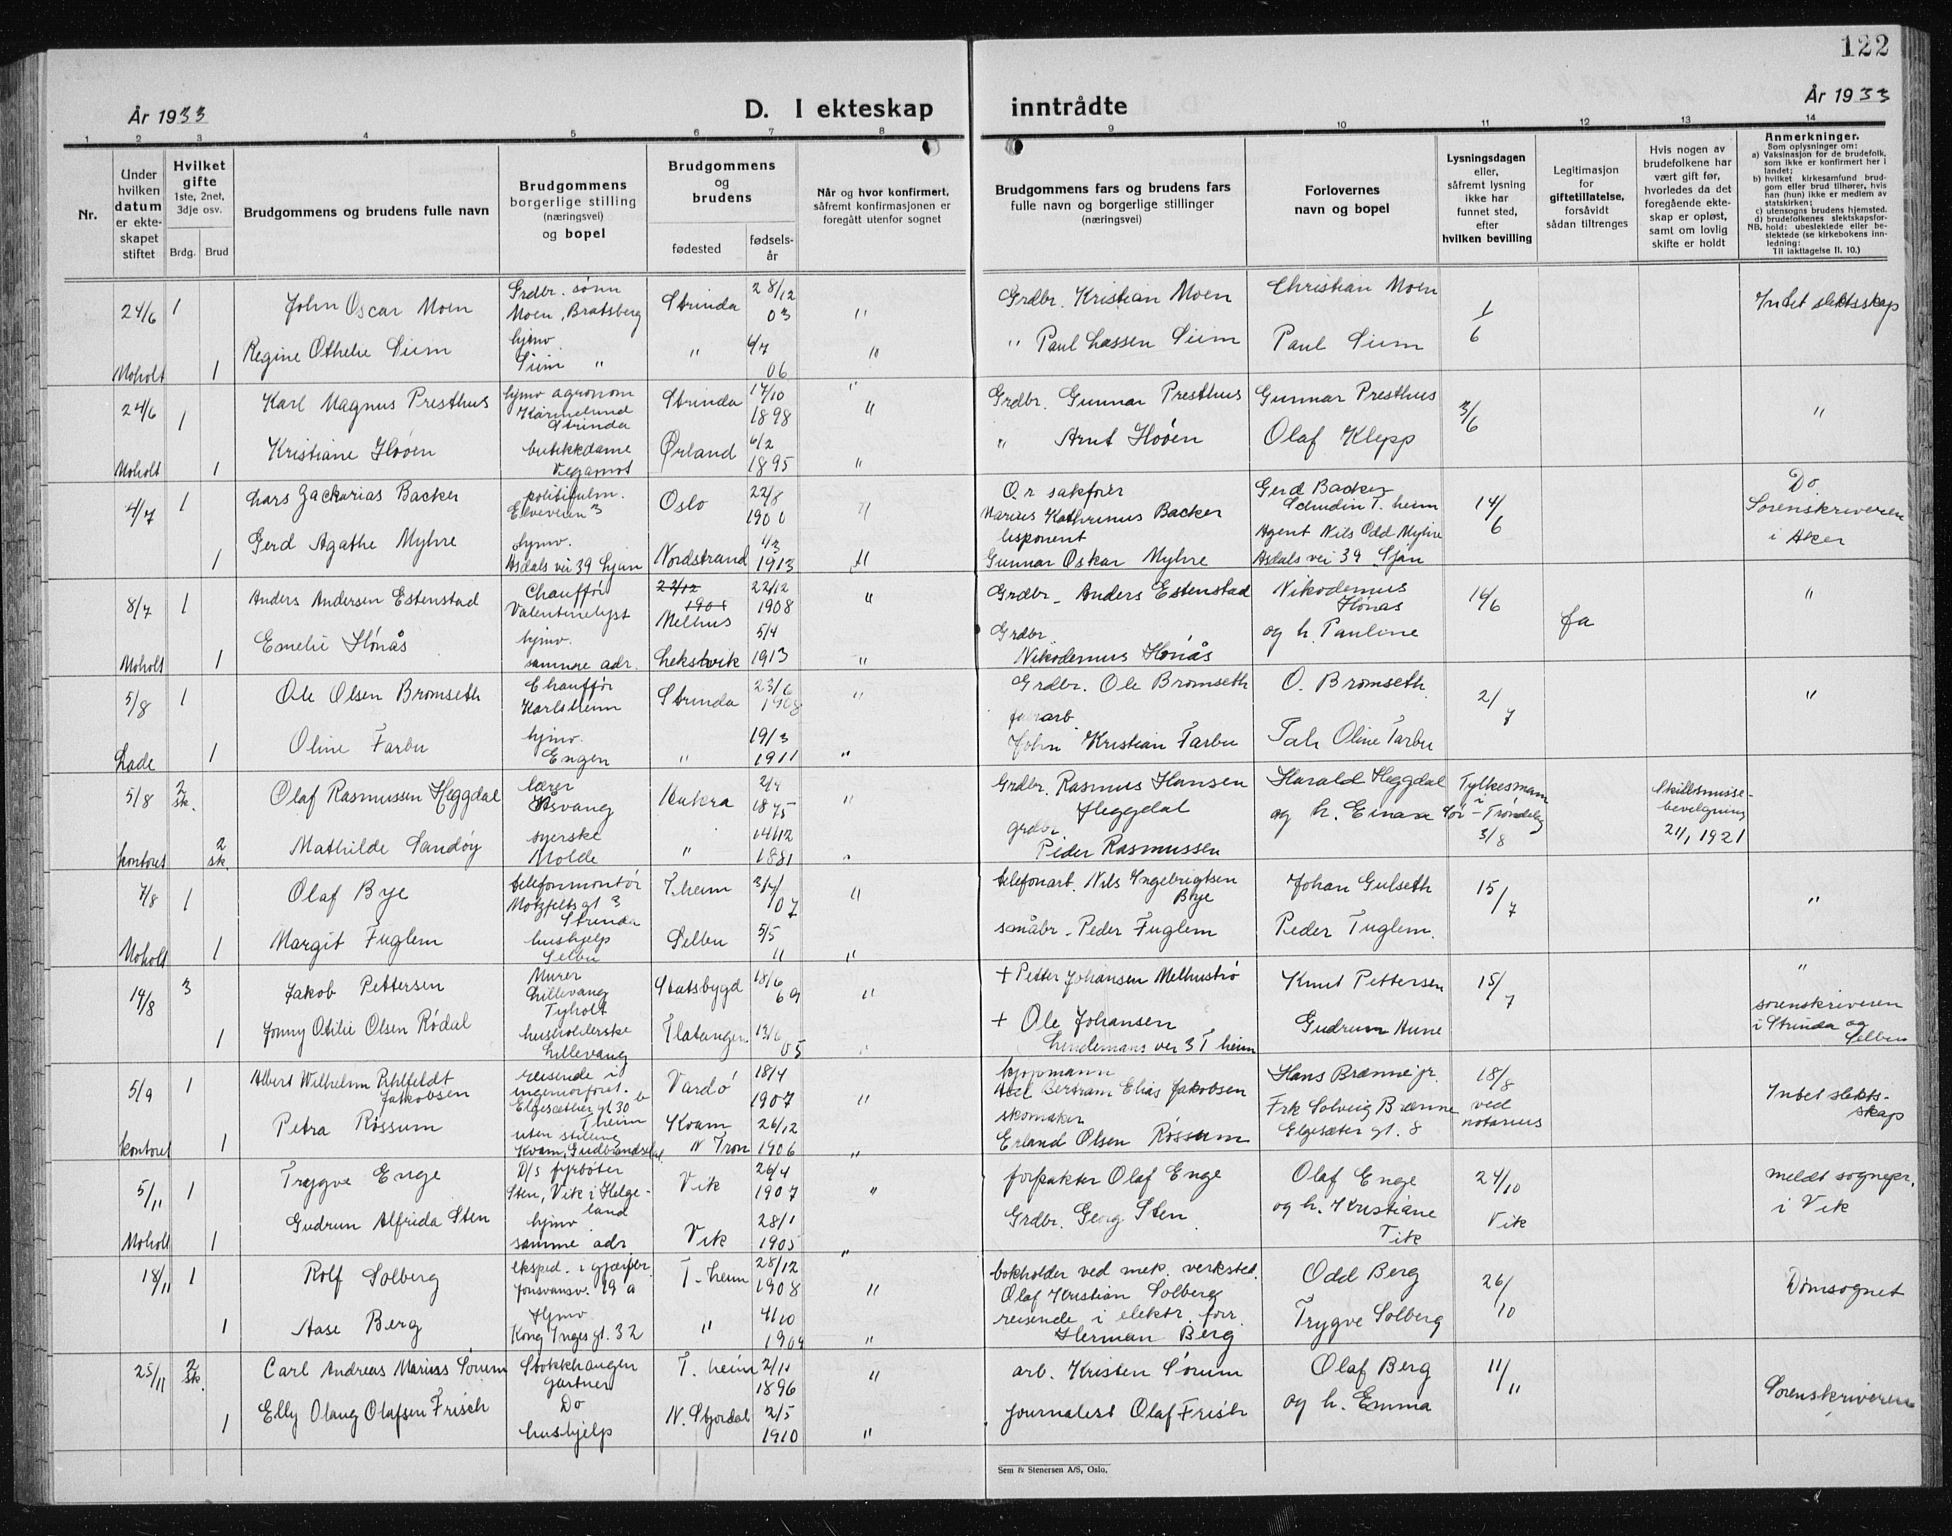 122
År 1933
D. I ekteskap inntrådte
År 1933
1 2 3 4 5 6 7 8 9 10 11 12 13 14
Nr.
Under hvilken datum er ekteskapet stiftet
Hvilket gifte 1ste, 2net, 3dje osv.
Brdg. Brud
Brudgommens og brudens fulle navn
Brudgommens borgerlige stilling (næringsvei) og bopel
Brudgommens og brudens
fødested
fødselsår
Når og hvor konfirmert, såfremt konfirmasjonen er foregått utenfor sognet
Brudgommens fars og brudens fars fulle navn og borgerlige stillinger (næringsvei)
Forlovernes navn og bopel
Lysningsdagen eller, såfremt lysning ikke har funnet sted, efter hvilken bevilling
Legitimasjon for giftetillatelse, forsåvidt sådan tiltrenges
Hvis nogen av brudefolkene har vært gift før, hvorledes da det foregående ekteskap er opløst, samt om lovlig skifte er holdt
Anmerkninger.
Som oplysninger om:
a) Vaksinasjon for de brudefolk, som ikke er konfirmert her i landet;
b) hvilket kirkesamfund brudgom eller brud tilhører, hvis han (hun) ikke er medlem av statskirken;
c) utensogns brudens hjemsted.
d) brudefolkenes slektskapsforhold: ubeslektede eller beslektede (se kirkebokens innledning:
NB. Til iakttagelse II. 10.)
24/6 1 John Oscar Moen Grdbr. sønn Moen, Bratsberg Strinda 28/12 03 " Grdbr. Kristian Moen Christian Moen 1/6 Intet slektsskap
Moholt 1 Regine Othelie Siem hjmv. Siem " " 4/7 06 " " Paul Lassen Siem Paul Siem
24/6 1 Karl Magnus Presthus hjmv agronom Strinda Strinda 17/10 1898 " Grdbr. Gunnar Presthus Gunnar Presthus 3/6 "
Moholt 1 Kristiane Hoøen butikkdame Vegamot Ørland 6/2 1895 " " Arnt Hoøen Olaf Klepp
4/7 1 Lars Zackarias Backer politifulm. Elveveien 3 Oslo 22/8 1900 " O.r. sakfører Marius Kathrinus Backer Gerd Backer T. heim 14/6 Do Sorenskriveren i Aker
1 Gerd Agathe Myhre hjmv. Asdals vei 39 Ljan Nordstrand 4/3 1913 " Disponent Gunnar Oskar Myhre Agent Nils Odd Myhre Asdals vei 39 Ljan
8/7 1 Anders Andersen Estenstad Chauffør Valentinelyst Melhus 22/12 1908 " Grdbr. Anders Estenstad Nikodemus Hønås 16/6 fa "
Moholt 1 Emelie Hønås hjmv. samme adr. Leksvik 5/4 1913 " Grdbr. Nikodemus Hønås og h. Pauline
5/8 1 Ole Olsen Bromseth Chauffør Karlsheim Strinda 23/6 1908 " Grdbr. Ole Bromseth O. Bromseth 2/7 "
Lade 1 Oline Farbu hjmv. Engen " 19/3 1911 " John Kristian Farbu Oline Farbu
5/8 2 sk. Olaf Rasmussen Heggdal lærer Åsvang Aukra 2/4 1875 " Grdbr. Rasmus Hansen Heggdal Harald Heggdal Fylkesmann i Sør-Trøndelag 3/8 Skilsmissebevilgning 2/1, 1921
kontoret 2 sk. Mathilde Sandøy syerske Molde " 14/12 1881 " grdbr. Peder Rasmussen og h. Einara
7/8 1 Olaf Bye telefonmontør Motzfeltsgt 3 Strinda T.heim 3/7 07 " telefonarb. Nils Ingebrigtsen Bye Johan Gulseth 15/7 "
Moholt 1 Margit Fuglem hushjelp Selbu Selbu 5/5 11 " småbr. Peder Fuglem Peder Fuglem.
14/8 3 Jakob Pettersen Murer Lillevang Tyholt Statsbygd 18/6 69 " + Petter Johansen Melhustrø Knut Pettersen 15/7 " sorenskriveren i Strinda og Selbu
1 Jonny Otilie Olsen Rödal husholderske Lillevang Flatanger 05 + Ole Johansen Lindemans vei 3 T heim Gudrun Aune
5/9 1 Albert Wilhelm Pihlfeldt Jakobsen reisende i ingeniørforret. Elgesæther gt 30 b T heim Vardö 18/4 1907 " kjøpmann Axel Bertram Elias Jakobsen Hans Brænne jr. 18/8 ved notarius Intet slektsskap
kontoret 1 Petra Rössum uten stilling Kvam, Gudbrandsdal Kvam N Fron 26/12 1906 " skomaker Erland Olsen Rössum Frk Solveig Brænne Elgesæter gt. 8
5/11 1 Trygve Enge D/s fyrbøter Sten, Vik i Helgeland Vik 26/4 1907 " forpakter Olaf Enge Olaf Enge 24/10 Vik meldt sognepr. i Vik
Moholt 1 Gudrun Alfrida Sten hjmv. samme adr Vik 28/1 1905 " Grdbr. Georg Sten og h. Kristiane Vik
18/11 1 Rolf Solberg eksped. i Jonsvansv. 19 a T-heim 28/12 1908 " bokholder ved mek. verksted. Olaf Kristian Solberg Odd Berg 26/10 Domsognet
1 Aase Berg Hjmv Kong Inges gt. 32 " 4/10 1904 " reisende i elektr. forr. Herman Berg Trygve Solberg
25/11 2 sk. Carl Andreas Marius Sørum Stokkhaugen gartner T. heim 2/11 1896 " arb. Kristen Sørum Olaf Berg 11/11 Sorenskriveren
1 Elly Olaug Olafsen Frisch Do hushjelp N. Stjørdal 2/5 1910 " journalist Olaf Frisch og h. Emma
Sem & Stenersen A/S, Oslo.